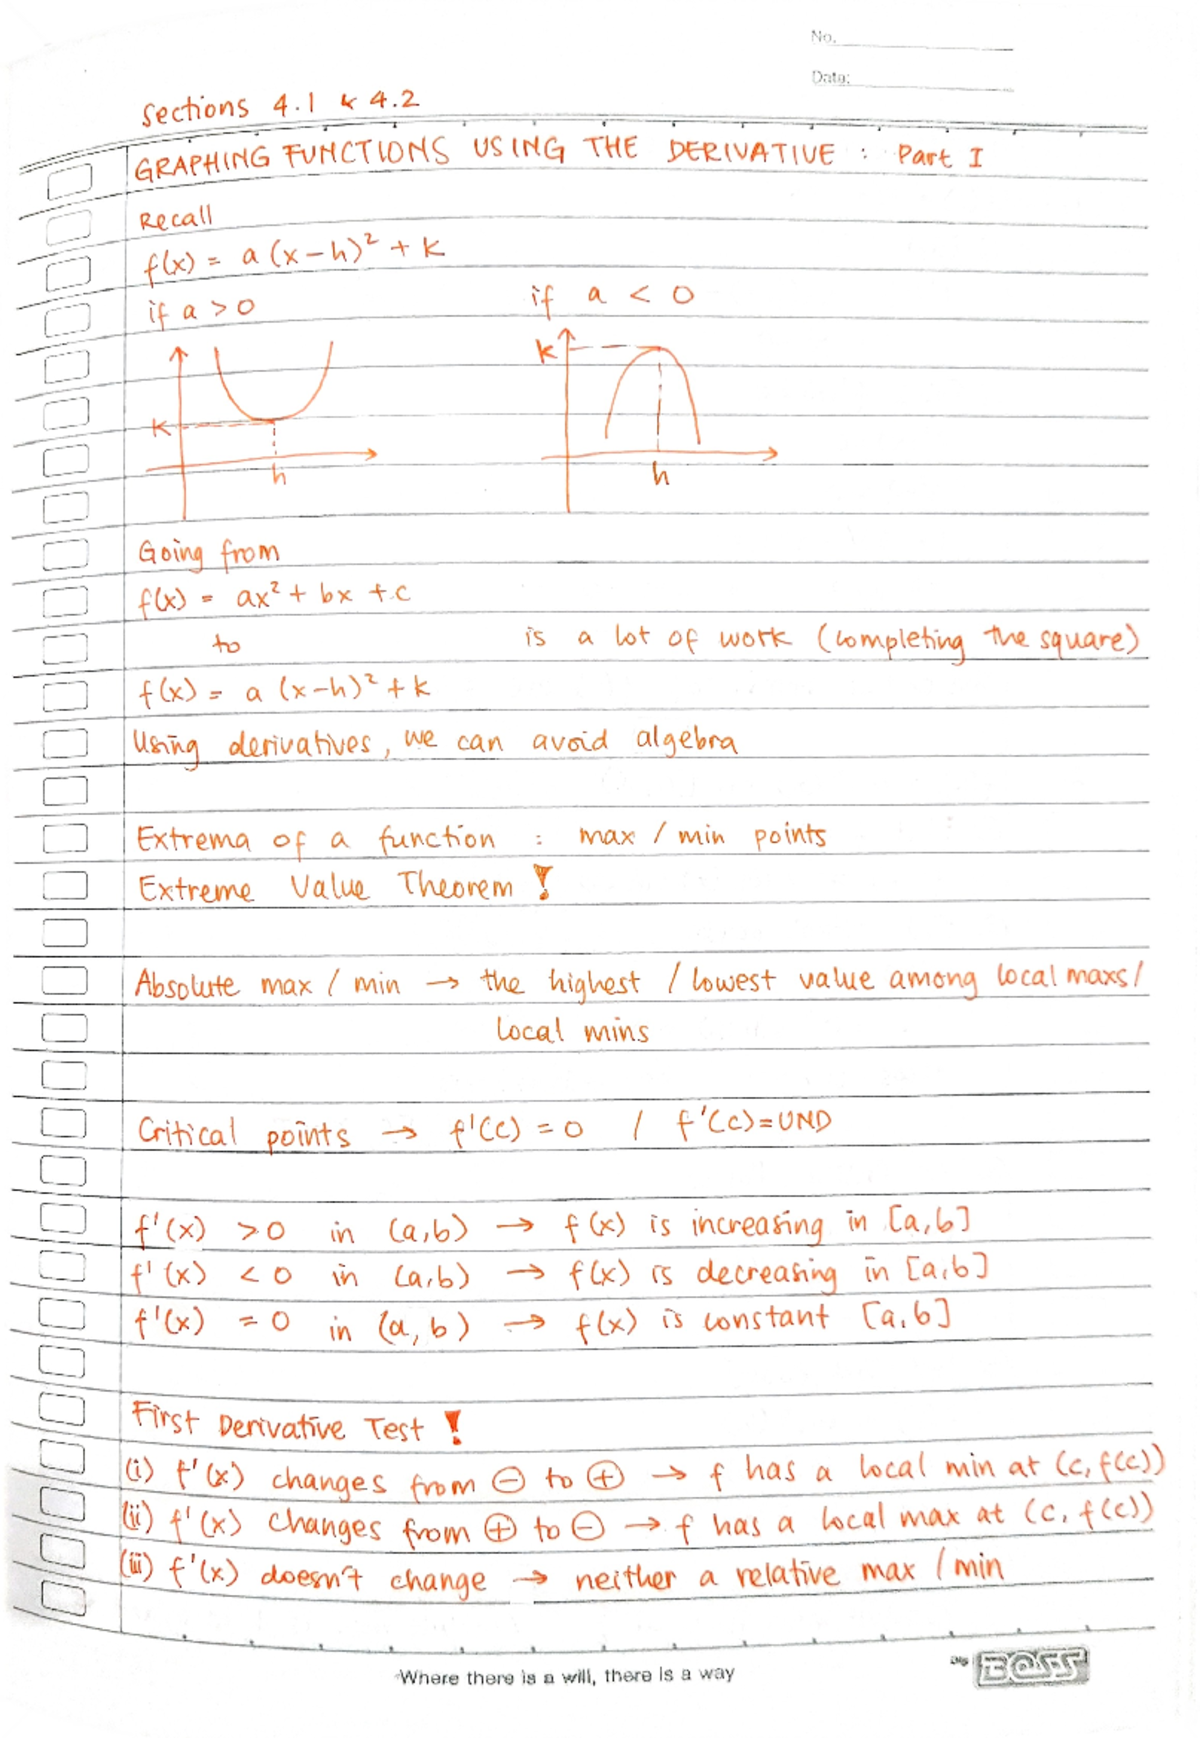 No.
Date:
Sections 4.1 & 4.2
GRAPHING FUNCTIONS USING THE DERIVATIVE : Part I
Recall
f(x) = a (x-h)² + k
if a > 0 if a < 0
k
k
h
h
Going from
f(x) = ax² + bx + c
to is a lot of work (completing the square)
f(x) = a (x-h)² + k
Using derivatives, we can avoid algebra
Extrema of a function : max / min points
Extreme Value Theorem !
Absolute max / min → the highest / lowest value among local maxs /
local mins
Critical points → f'(c) = 0 / f'(c) = UND
f'(x) > 0 in (a,b) → f(x) is increasing in [a,b]
f'(x) < 0 in (a,b) → f(x) is decreasing in [a,b]
f'(x) = 0 in (a,b) → f(x) is constant [a,b]
First Derivative Test !
(i) f'(x) changes from ⊖ to ⊕ → f has a local min at (c, f(c))
(ii) f'(x) changes from ⊕ to ⊖ → f has a local max at (c, f(c))
(iii) f'(x) doesn't change → neither a relative max / min
Where there is a will, there is a way
BOSS